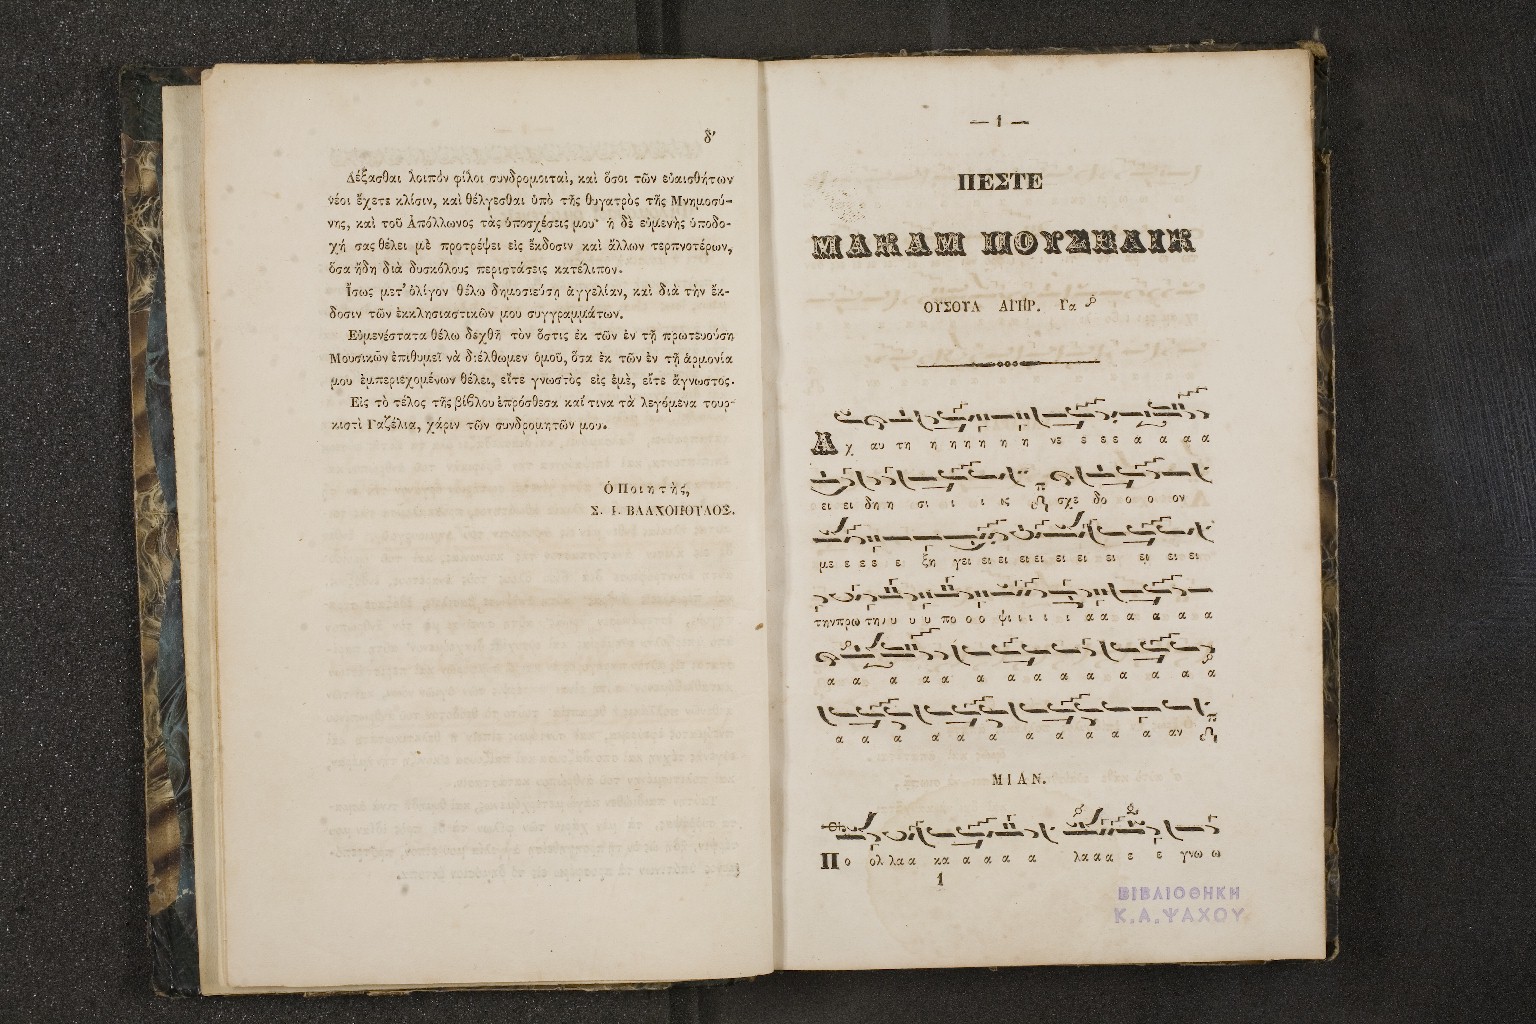 δ'
Δέξασθαι λοιπόν φίλοι συνδρομοιταὶ, καὶ ὅσοι τῶν εὐαισθήτων
νέοι ἔχετε κλίσιν, καὶ θέλγεσθαι ὑπὸ τῆς θυγατρὸς τῆς Μνημοσύ-
νης, καὶ τοῦ Ἀπόλλωνος τὰς ὑποσχέσεις μου· ἡ δὲ εὐμενὴς ὑποδο-
χή σας θέλει μὲ προτρέψει εἰς ἔκδοσιν καὶ ἄλλων τερπνοτέρων,
ὅσα ἤδη διὰ δυσκόλους περιστάσεις κατέλιπον.
Ἴσως μετ' ὀλίγον θέλω δημοσιεύσῃ ἀγγελίαν, καὶ διὰ τὴν ἔκ-
δοσιν τῶν ἐκκλησιαστικῶν μου συγγραμμάτων.
Εὐμενέστατα θέλω δεχθῆ τὸν ὅστις ἐκ τῶν ἐν τῇ πρωτευούσῃ
Μουσικῶν ἐπιθυμεῖ νὰ διέλθωμεν ὁμοῦ, ὅσα ἐκ τῶν ἐν τῇ ἁρμονίᾳ
μου ἐμπεριεχομένων θέλει, εἴτε γνωστὸς εἰς ἐμὲ, εἴτε ἄγνωστος.
Εἰς τὸ τέλος τῆς βίβλου ἐπρόσθεσα καί τινα τὰ λεγόμενα τουρ-
κιστὶ Γαζέλια, χάριν τῶν συνδρομητῶν μου.
Ὁ Ποιητὴς,
Σ. Ι. ΒΛΑΧΟΠΟΥΛΟΣ.
— 1 —
ΠΕΣΤΕ
ΜΑΚΑΜ ΠΟΥΣΕΛΙΚ
ΟΥΣΟΥΛ ΑΓΗΡ. Γα
Αχ αυ τη η η η η η η νε ε ε ε α α α α
ει ει δη η σι ι ι ις σχε δο ο ο ον
με ε ε ε ε ξη γει ει ει ει ει ει ει ει ει ει ει
την πρω τη υ υ υ υ πο ο ο ψι ι ι ι ι α α α α α α
α α α α α α α α α α α α α α
α α α α α α α α α α α αν
ΜΙΑΝ.
Πο ολ λα α κα α α α α λα α α ε ε γνω ω
1
ΒΙΒΛΙΟΘΗΚΗ
Κ.Α.ΨΑΧΟΥ